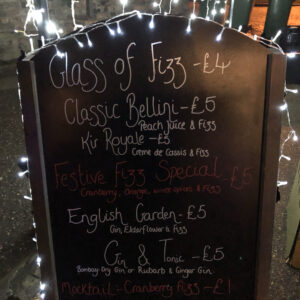 Glass of Fizz - £4
Classic Bellini - £5
Peach Juice & Fizz
Kir Royale - £5
Creme de Cassis & Fizz
Festive Fizz Special - £5
Cranberry, Orange, winter spices & Fizz
English Garden - £5
Gin, Elderflower & Fizz
Gin & Tonic - £5
Bombay Dry Gin or Rhubarb & Ginger Gin
Mocktail - Cranberry Fizz - £1